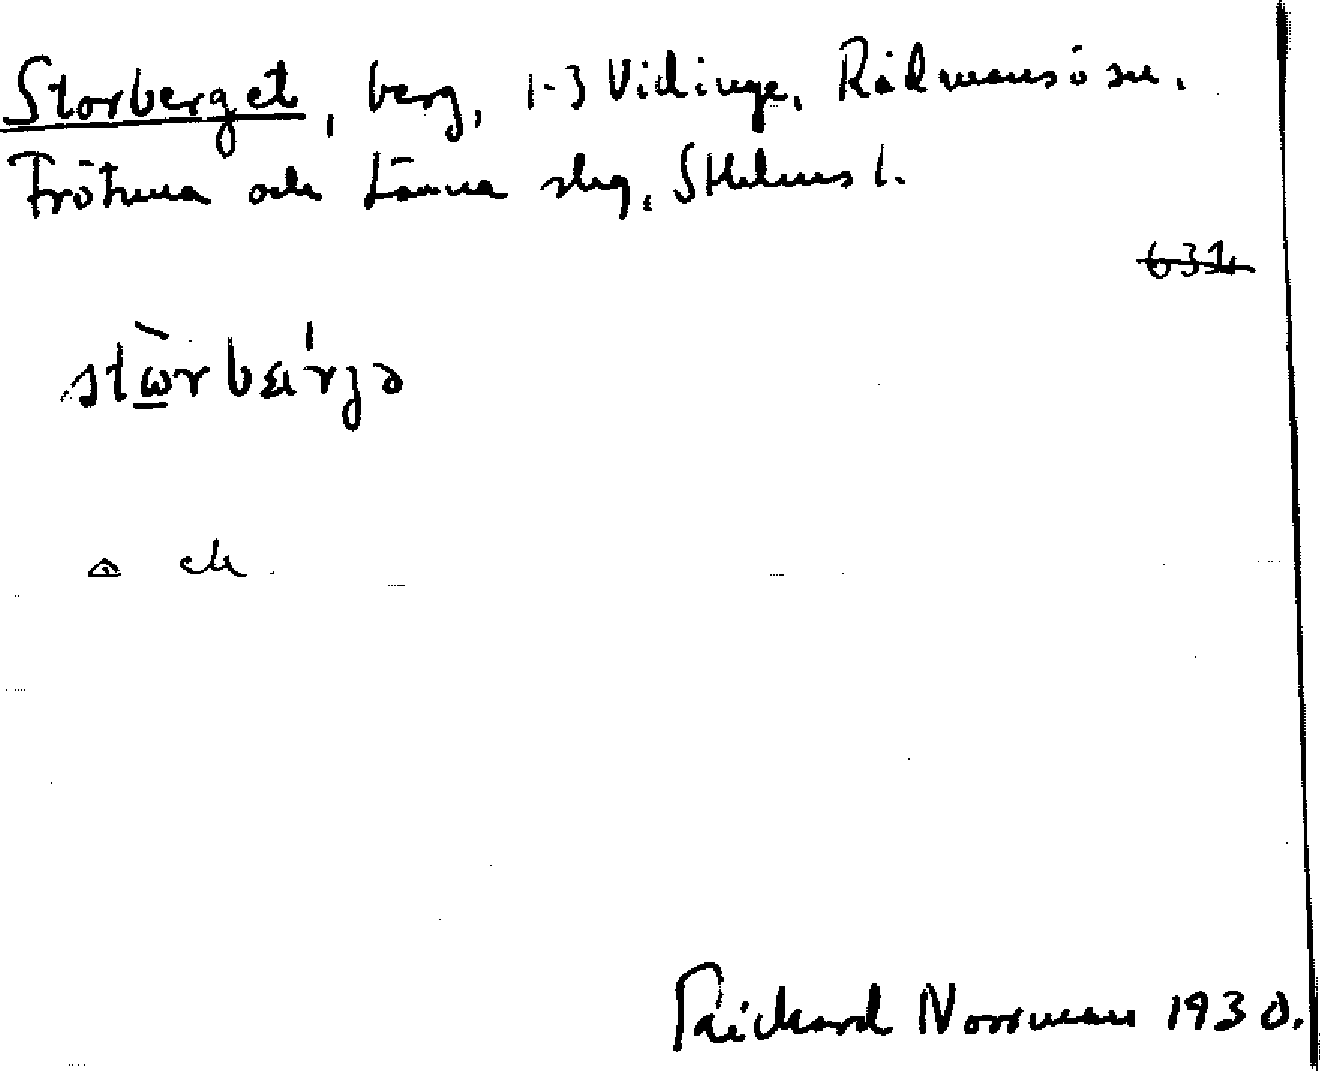 Storberget, berg, 1-3 Vidinge, Rådmansö sn.
Frötuna och Länna slg, Sthlms l.
631
Rickard Norrman 1930.